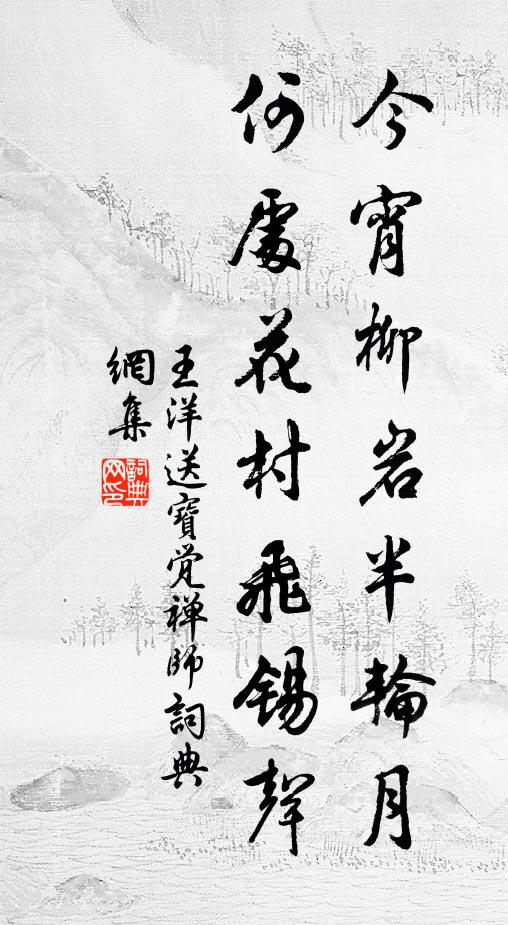 今宵柳岩半輪月
何處花村飛錫聲
王洋送寶覚禅師詞典
網集
詞典
网印